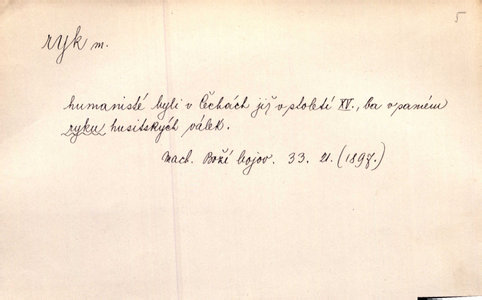 5
ryk m.
humanisté byli v Čechách již v století XV., ba v samém
ryku husitských válek.
Mach. Boží bojov. 33. 21. (1897.)